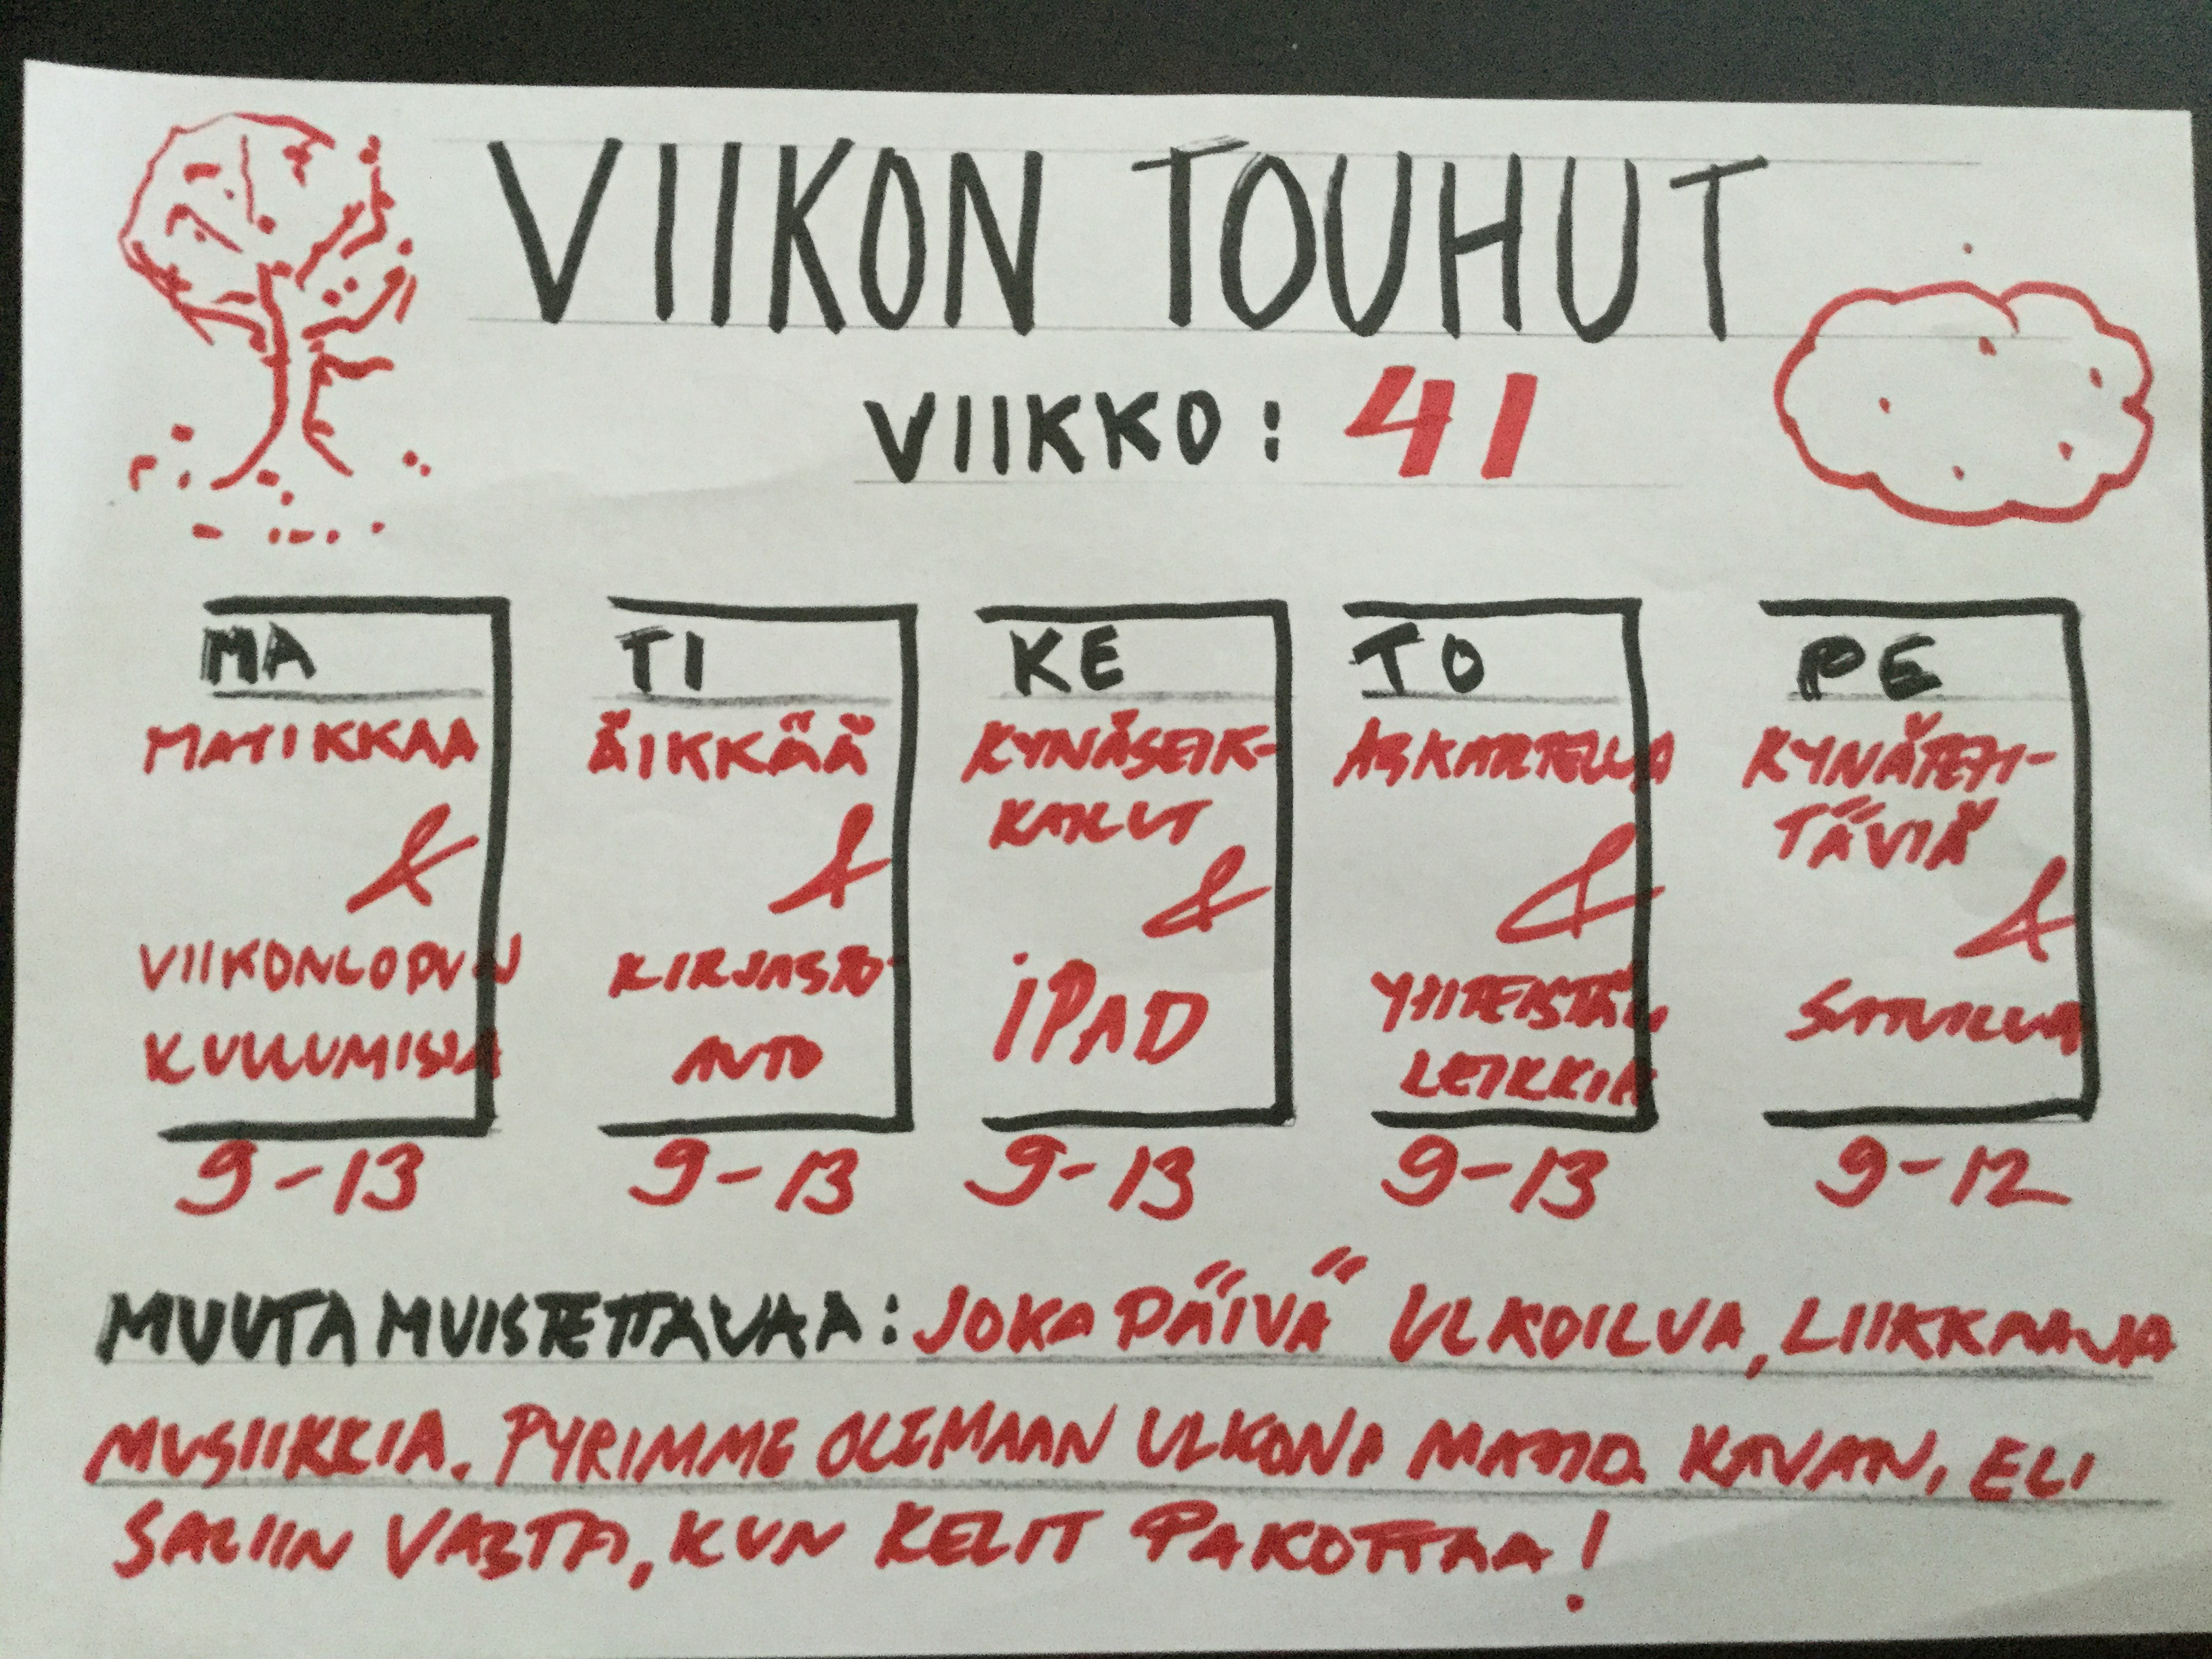 VIIKON TOUHUT
VIIKKO: 41
MA
MATIKKAA
&
VIIKONLOPUN
KUULUMISIA
9-13
TI
ÄIKKÄÄ
&
KIRJASTO-
AUTO
9-13
KE
KYNÄSEIK-
KAILUT
&
iPAD
9-13
TO
ASKARTELUA
&
YHTEISTÄ
LEIKKIÄ
9-13
PE
KYNÄTEH-
TÄVIÄ
&
SATUILUA
9-12
MUUTA MUISTETTAVAA: JOKA PÄIVÄ ULKOILUA, LIIKKAA JA
MUSIIKKIA. PYRIMME OLEMAAN ULKONA MAHD. KAUAN, ELI
SALIIN VASTA, KUN KELIT PAKOTTAA!